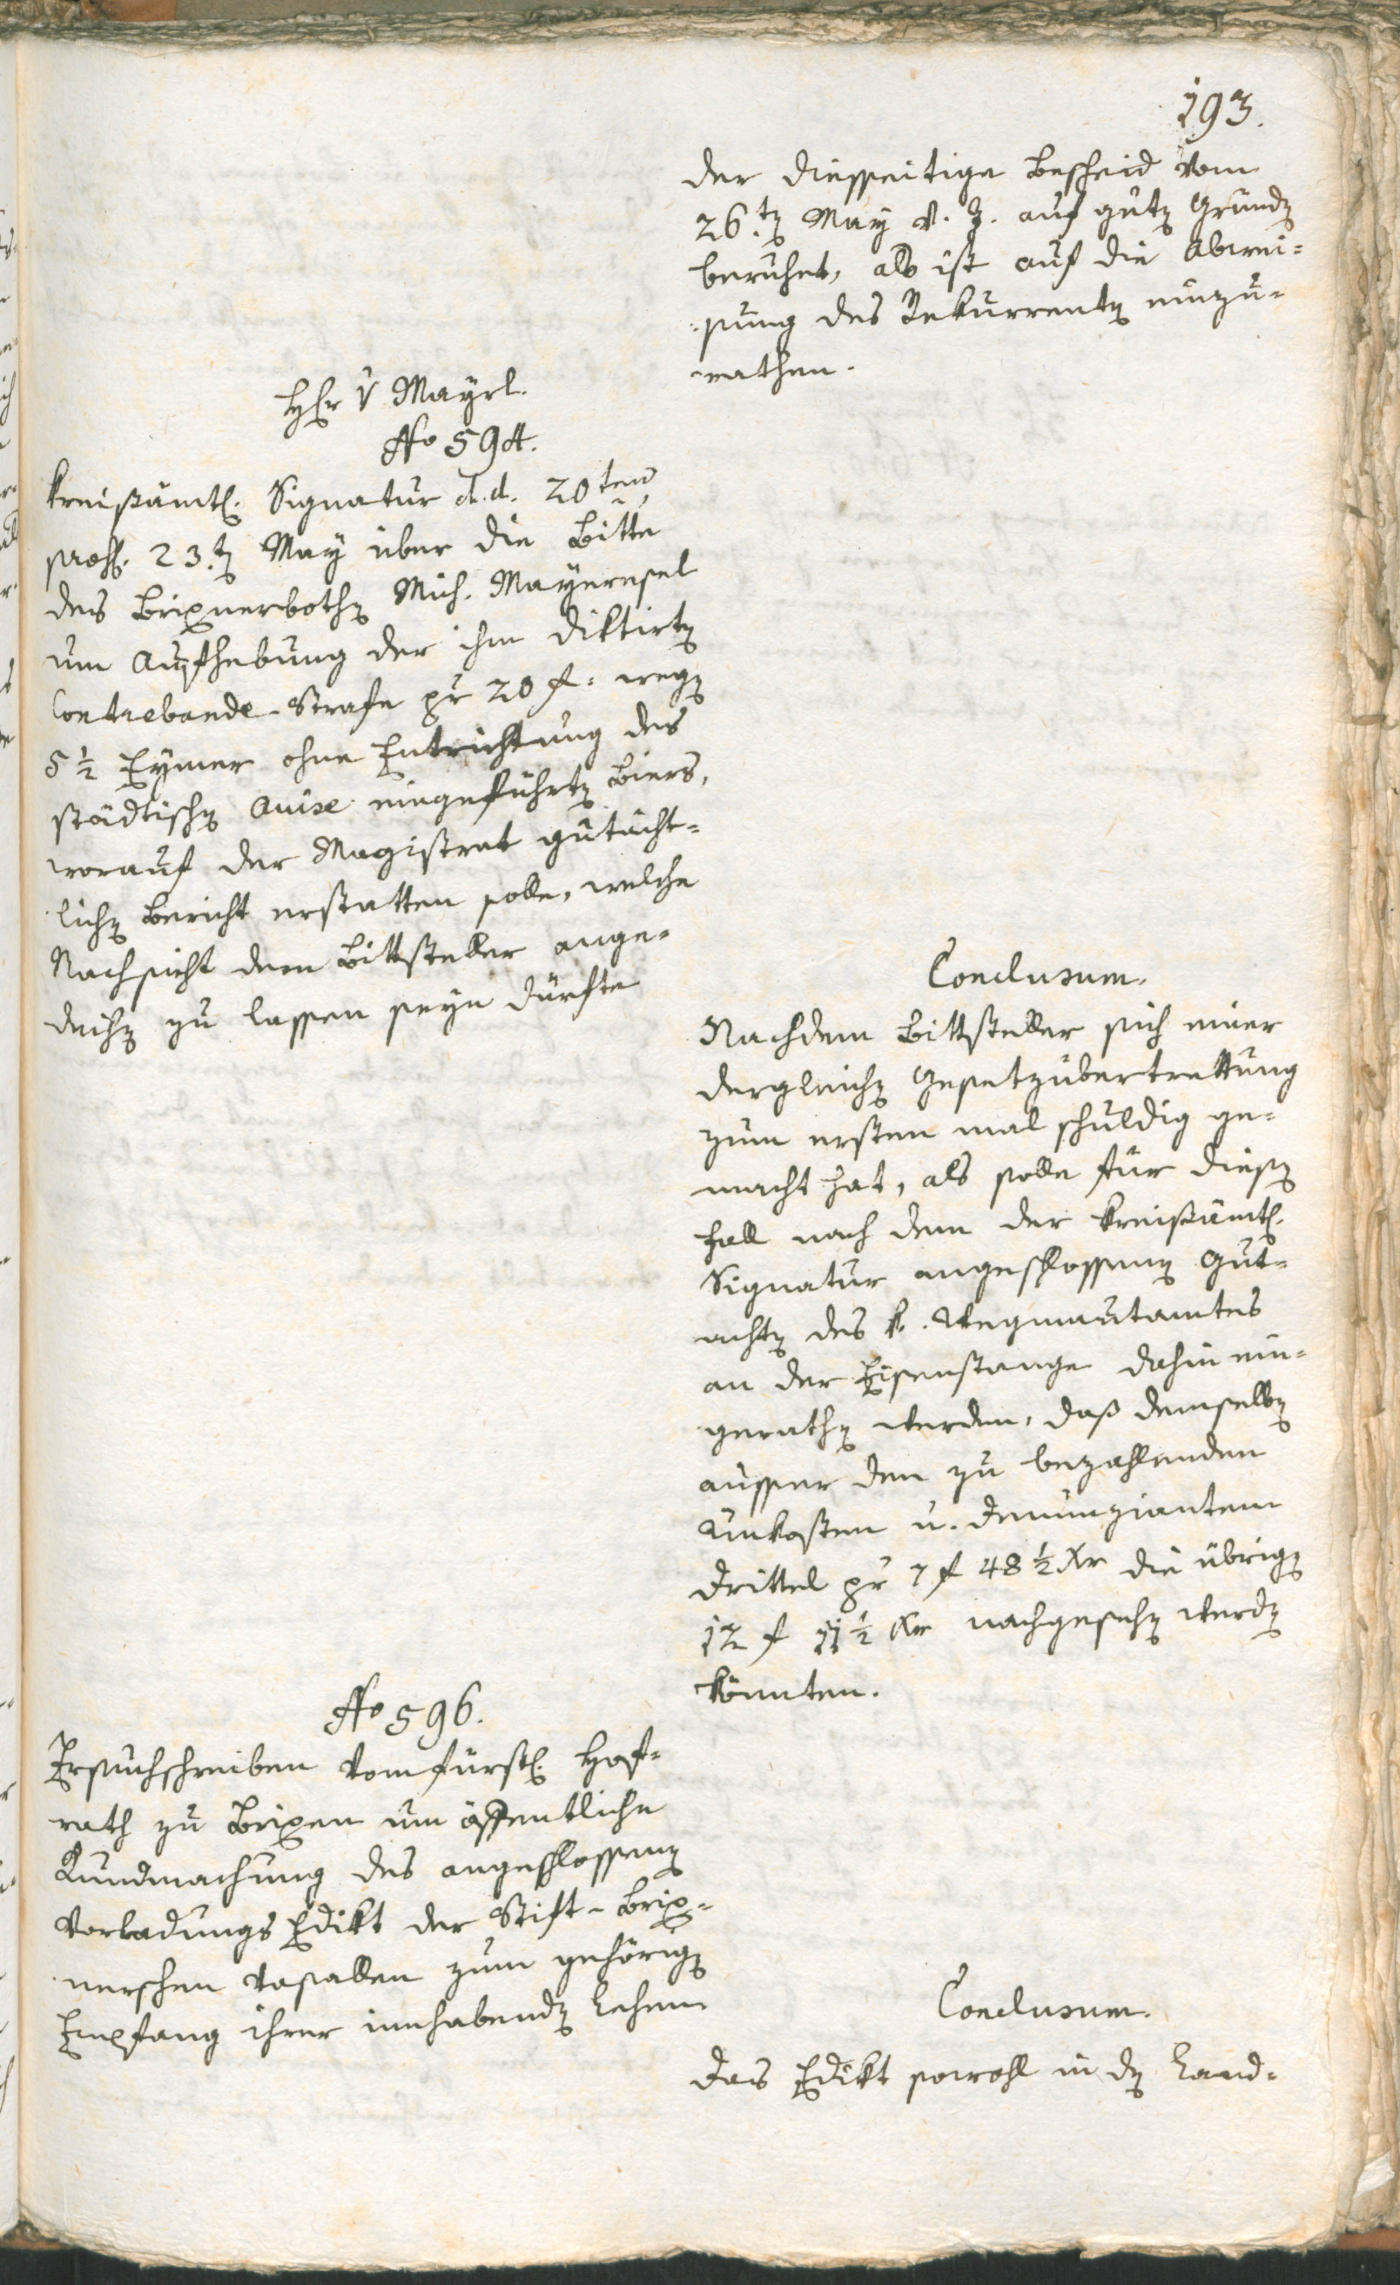 193.
der diesseitige Bescheid vom
26.ten May v. J. auf guten Gründen
beruhet, als ist auf die Abwei-
sung des Rekurrenten einzu-
rathen.
Herr v Mayrl.
No 594.
Kreisämtl. Signatur d.d. 20ten
praes. 23.ten May über die Bitte
des Brixnerbothen Mich. Mayeregel
um Aufhebung der ihm diktirten
Contrebande-Strafe pr 20 f. wegen
5 1/2 Eymer ohne Entrichtung des
städtischen Avise eingeführten Biers,
worauf der Magistrat gutächt-
lichen Bericht erstatten solle, welche
Nachsicht dem Bittsteller ange-
deihen zu lassen seyn dürfte
Conclusum.
Nachdem Bittsteller sich einer
dergleichen Gesetzübertrettung
zum ersten mal schuldig ge-
macht hat, als solle für diesen
Fall nach dem der Kreisämtl.
Signatur angeschlossenen Gut-
achten des k. Wegmautamtes
an der Eisenstange dahin ein-
gerathen werden, daß demselben
ausser den zu bezahlenden
Unkosten u. Denunziantem
Drittel pr 7 f 48 1/2 Xr die übrigen
12 f 11 1/2 Xr nachgesehen werden
könnten.
No 596.
Ersuchschreiben vom fürstl. Hof-
rath zu Brixen um öffentliche
Kundmachung des angeschlossenen
Vorladungs Edikt der Stift-Brix-
nerschen Vasallen zum gehörigen
Empfang ihrer innhabenden Lehen
Conclusum.
Das Edikt sowohl in den Land-